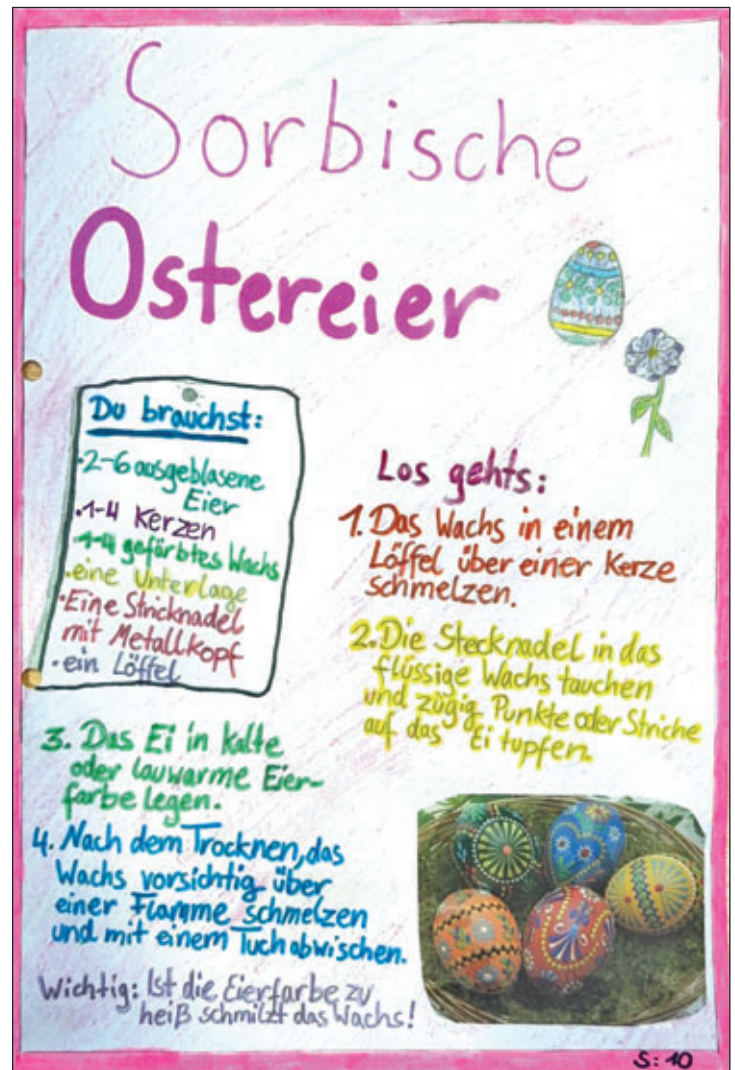 Sorbische
Ostereier
Du brauchst:
•2-6 ausgeblasene
Eier
•1-4 Kerzen
•1-4 gefärbtes Wachs
•eine Unterlage
•Eine Stricknadel
mit Metallkopf
•ein Löffel
Los gehts:
1. Das Wachs in einem
Löffel über einer Kerze
schmelzen.
2. Die Stecknadel in das
flüssige Wachs tauchen
und zügig Punkte oder Striche
auf das Ei tupfen.
3. Das Ei in kalte
oder lauwarme Eier-
farbe legen.
4. Nach dem Trocknen, das
Wachs vorsichtig über
einer Flamme schmelzen
und mit einem Tuch abwischen.
Wichtig: Ist die Eierfarbe zu
heiß schmilzt das Wachs!
S: 10